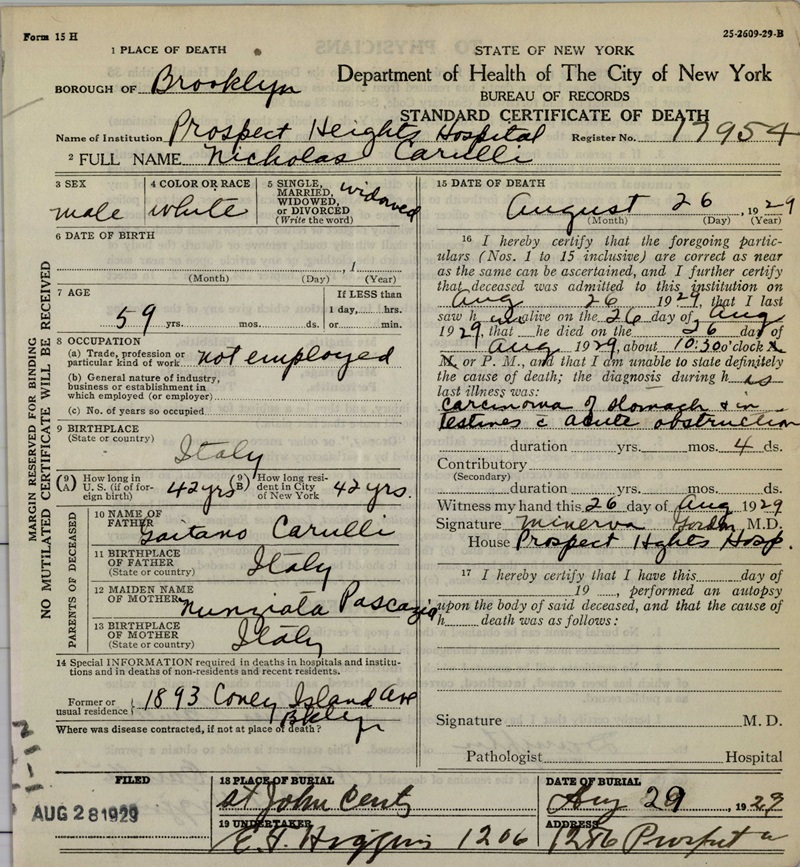 Form 15 H
25-2609-29-B
1 PLACE OF DEATH
STATE OF NEW YORK
BOROUGH OF Brooklyn
Department of Health of The City of New York
BUREAU OF RECORDS
STANDARD CERTIFICATE OF DEATH
Name of Institution Prospect Heights Hospital Register No. 17954
2 FULL NAME Nicholas Carulli
MARGIN RESERVED FOR BINDING
NO MUTILATED CERTIFICATE WILL BE RECEIVED
3 SEX
male
4 COLOR OR RACE
white
5 SINGLE, MARRIED, WIDOWED, or DIVORCED (Write the word)
widowed
6 DATE OF BIRTH
, 1
(Month) (Day) (Year)
7 AGE
59 yrs. mos. ds.
If LESS than
1 day, hrs.
or min.
8 OCCUPATION
(a) Trade, profession or
particular kind of work not employed
(b) General nature of industry,
business or establishment in
which employed (or employer)
(c) No. of years so occupied
9 BIRTHPLACE
(State or country)
Italy
(9A) How long in U. S. (if of foreign birth) 42 yrs
(9B) How long resident in City of New York 42 yrs.
PARENTS OF DECEASED
10 NAME OF
FATHER Gaitano Carulli
11 BIRTHPLACE
OF FATHER
(State or country) Italy
12 MAIDEN NAME
OF MOTHER Nunziata Pascazio
13 BIRTHPLACE
OF MOTHER
(State or country) Italy
14 Special INFORMATION required in deaths in hospitals and institu-
tions and in deaths of non-residents and recent residents.
Former or
usual residence 1893 Coney Island Ave
Bklyn
Where was disease contracted, if not at place of death?
15 DATE OF DEATH
August 26, 1929
(Month) (Day) (Year)
16 I hereby certify that the foregoing partic-
ulars (Nos. 1 to 15 inclusive) are correct as near
as the same can be ascertained, and I further certify
that deceased was admitted to this institution on
Aug 26 1929, that I last
saw h im alive on the 26 day of Aug
1929, that he died on the 26 day of
Aug 1929, about 10:30 o'clock A.
M. or P. M., and that I am unable to state definitely
the cause of death; the diagnosis during h is
last illness was:
carcinoma of stomach & in
testines c acute obstruction
duration yrs. mos. 4 ds.
Contributory
(Secondary)
duration yrs. mos. ds.
Witness my hand this 26 day of Aug 1929
Signature Minerva M.D.
House Prospect Hghts Hosp.
17 I hereby certify that I have this day of
19 , performed an autopsy
upon the body of said deceased, and that the cause of
h death was as follows:
Signature M. D.
Pathologist Hospital
FILED
AUG 28 1929
18 PLACE OF BURIAL
St John Cemty
DATE OF BURIAL
Aug 29, 1929
19 UNDERTAKER
E. F. Higgins 1206
ADDRESS
1286 Prospect a